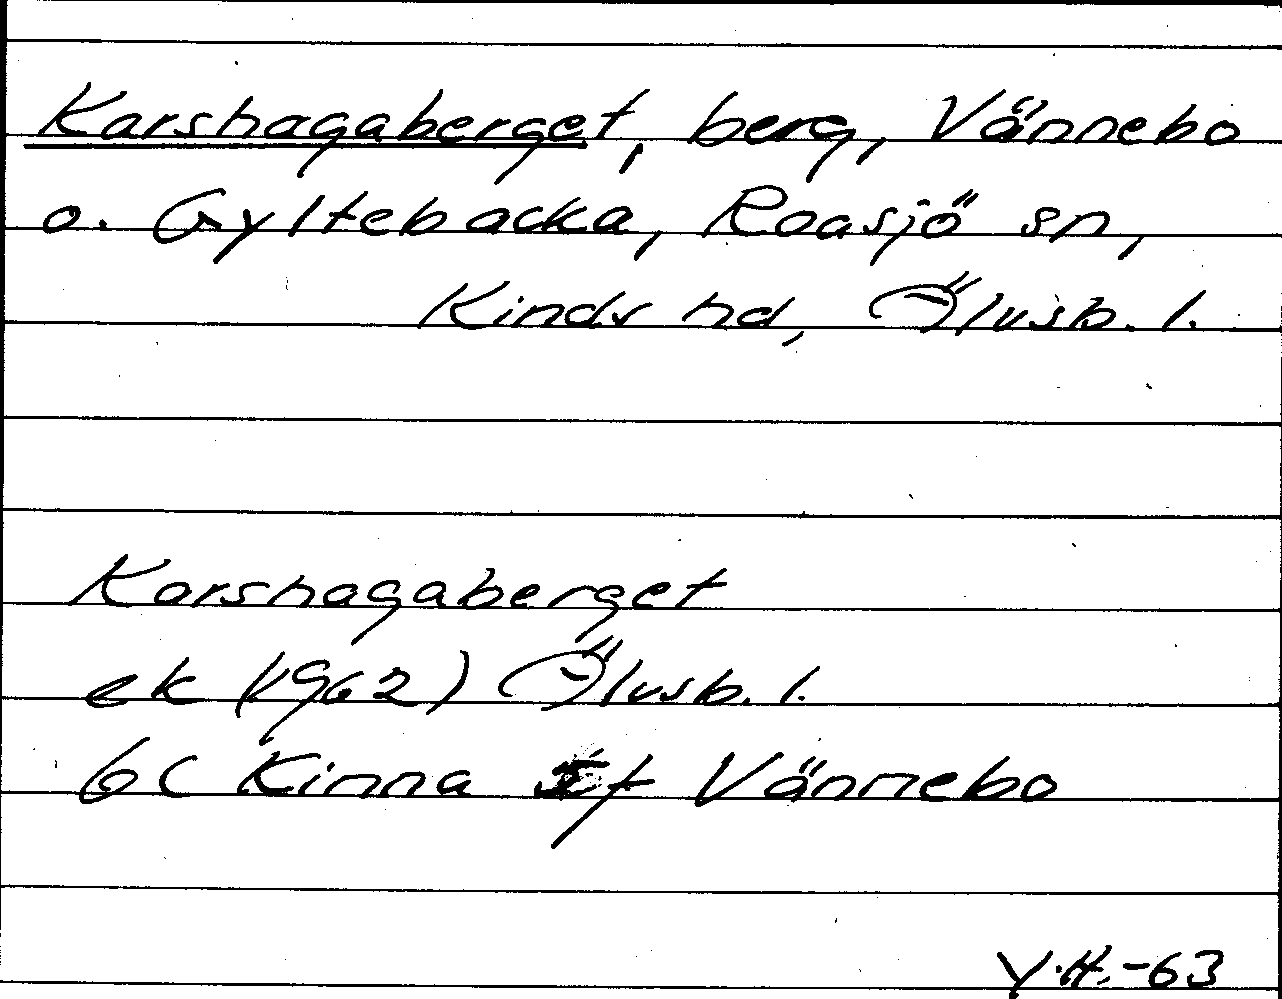 Karshagaberget, berg, Vännebo
o. Gyltebacka, Roasjö sn,
Kinds hd, Älvsb. l.
Karshagaberget
ek (1962) Älvsb. l.
6C Kinna Vännebo
Y.H.-63